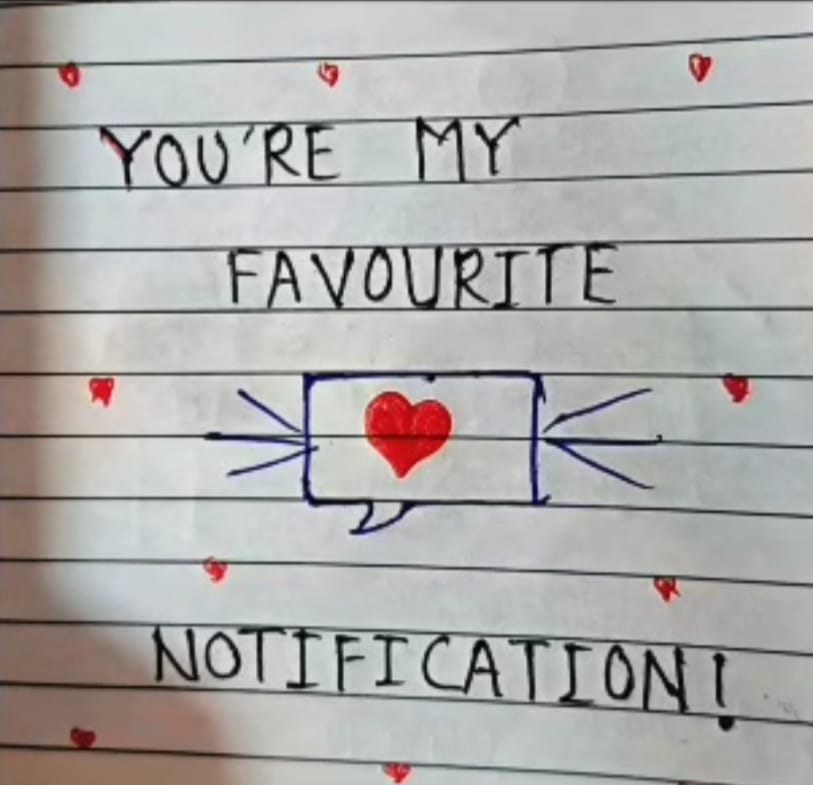 YOU'RE MY
FAVOURITE
NOTIFICATION!